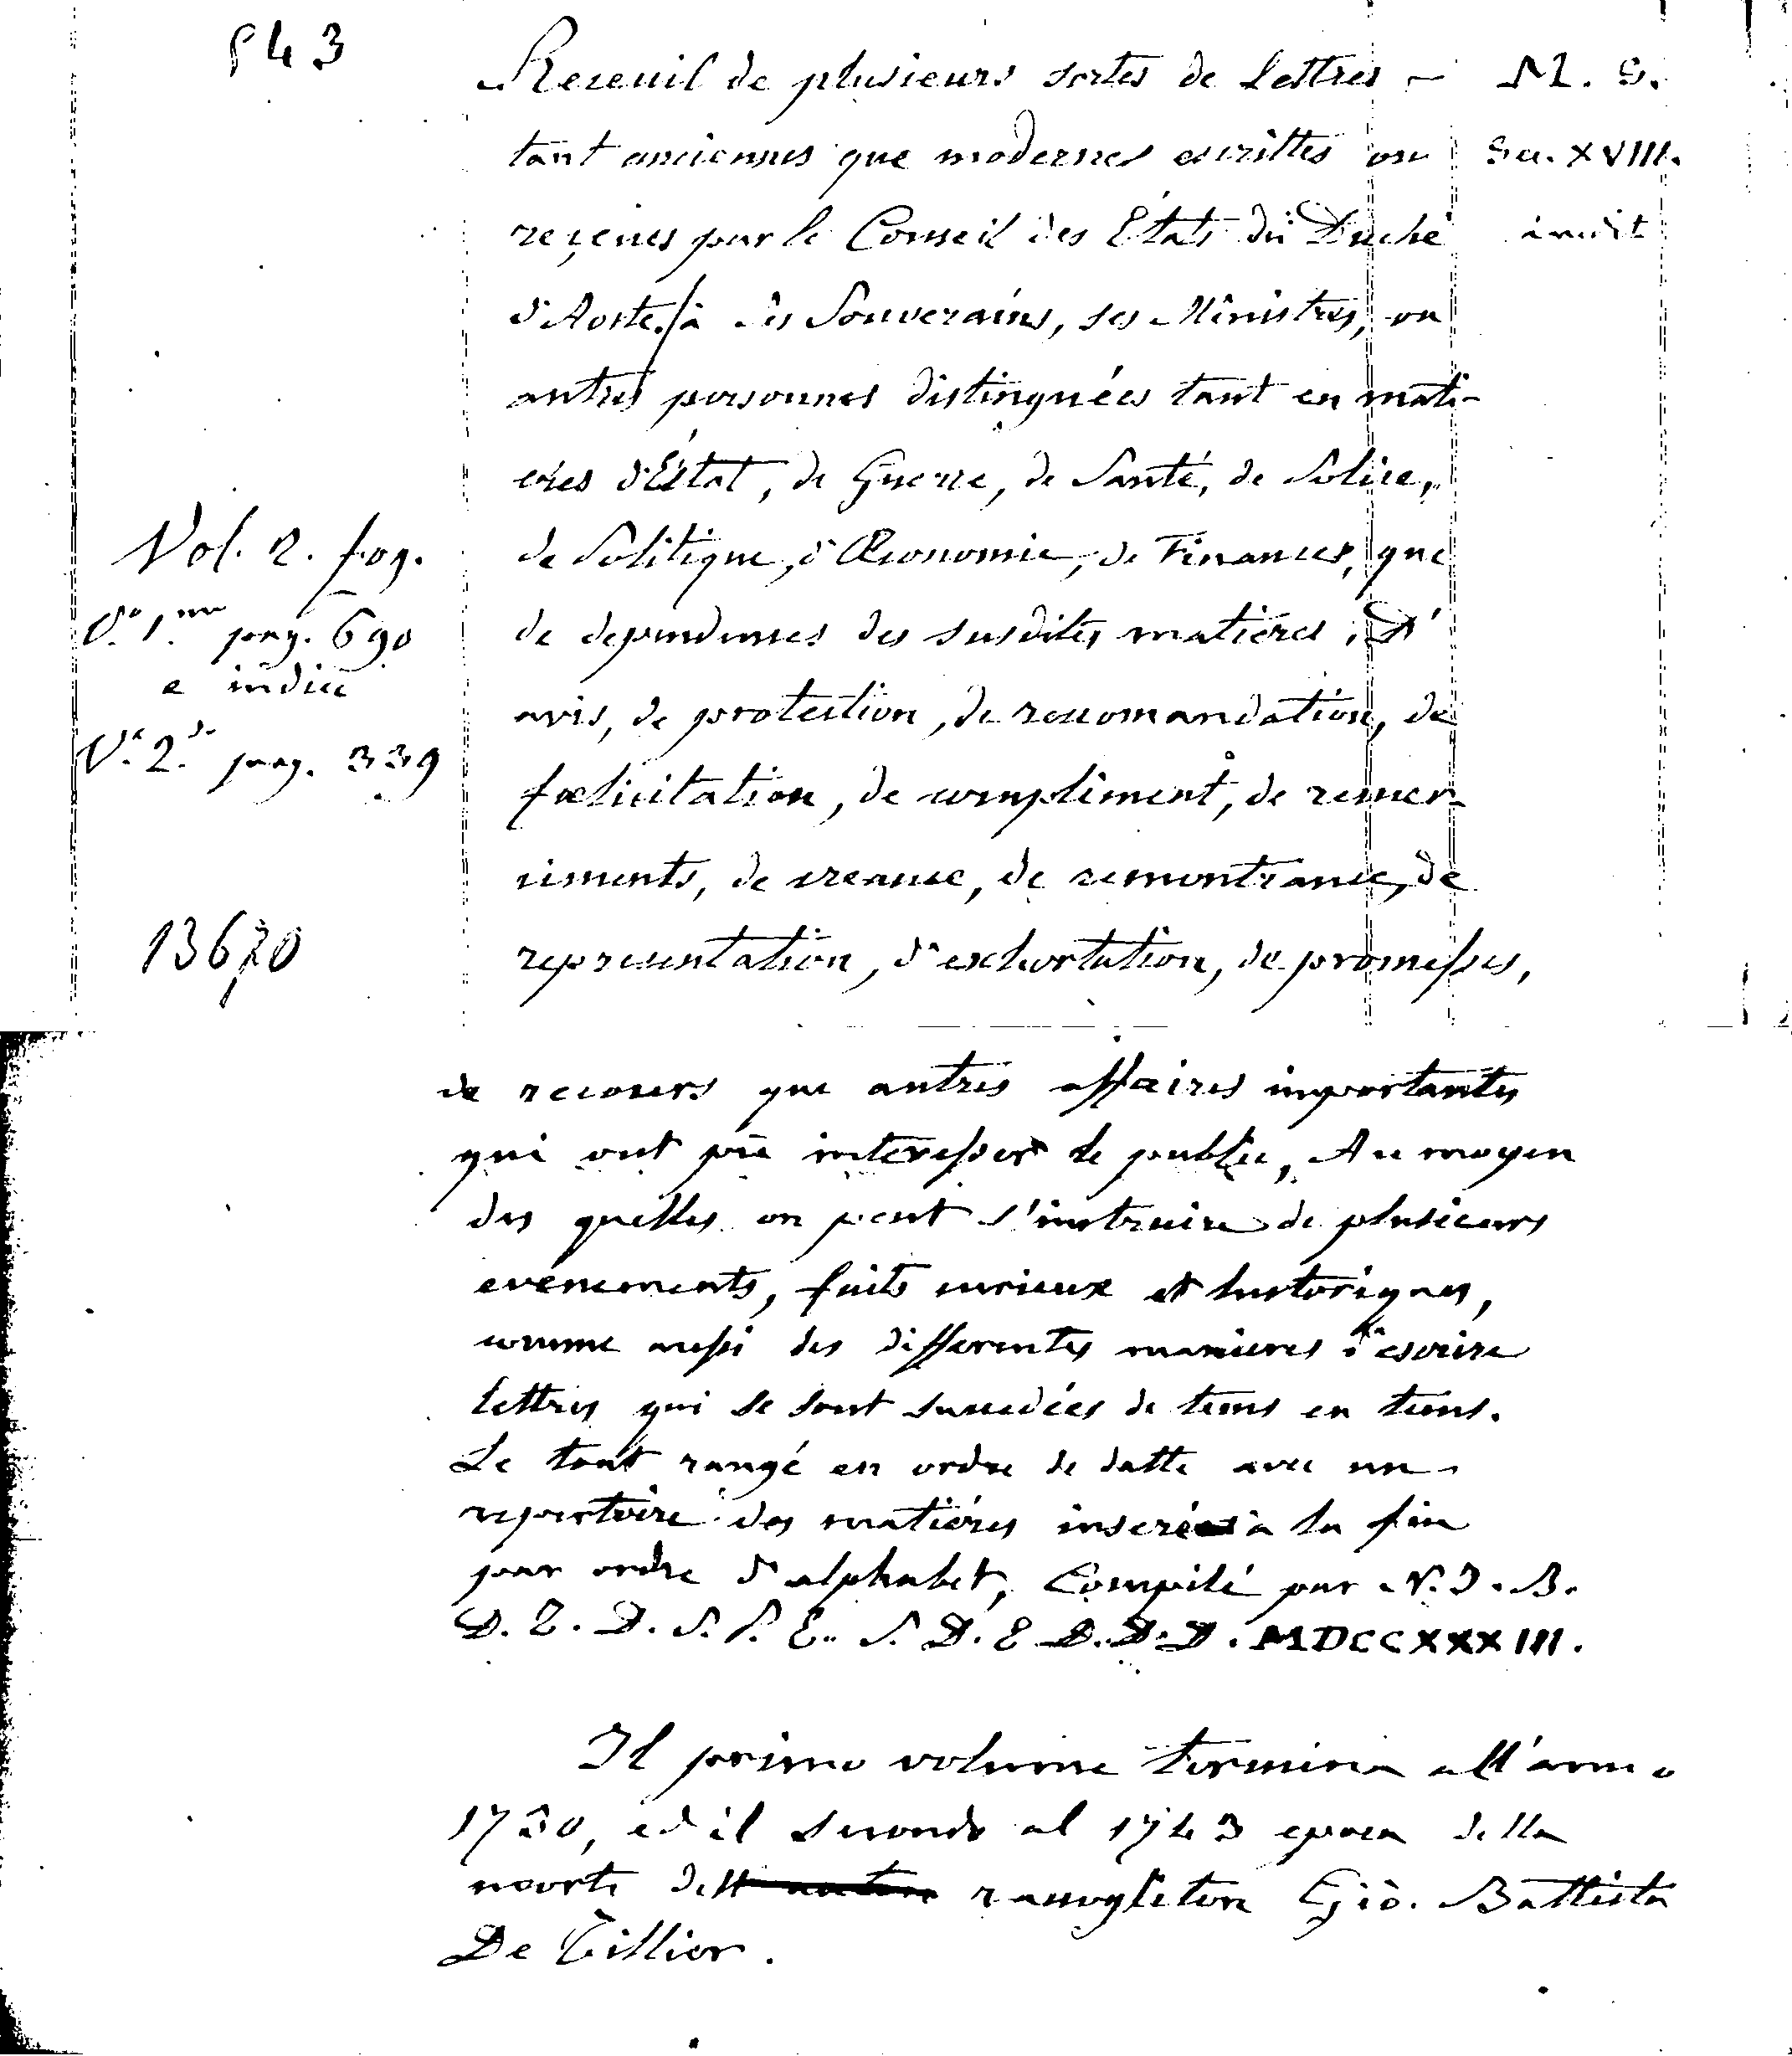 543
Receuil de plusieurs sortes de Lettres – M. S.
tant anciennes que modernes escrittes ou Sec. XVIII.
reçeues par le Conseil des Etats du Duché inedit
d'Aoste / à ses Souverains, ses Ministres, ou
autres personnes distinguées tant en mati-
eres d'État, de Guerre, de Santé, de Police,
Vol. 2. fog.
de Politique, d'Œconomie, de Finances, que
V.º 1.mo pag. 690
de dependences des susdites matieres, D'
e indice
avis, de protection, de recomandation, de
V.º 2.do pag. 339
fœlicitation, de compliment, de remer-
ciments, de creance, de remontrance, de
13670
representation, d'exhortation, de promesses,
de recours que autres affaires importantes
qui ont pû interesser le public, Au moyen
des quelles on peut s'instruire de plusieurs
evenements, faits curieux et historiques,
comme aussi des differentes manieres d'escrire
lettres qui se sont succedées de tems en tems.
Le tout rangé en ordre de datte avec un
repertoire des matiéres inseré à la fin
par ordre d'alphabet, Compilé par N. J. B.
D. T. D. S. S. E. S. D. E D. D. D. MDCCXXXIII.
Il primo volume termina all'anno
1730, ed il secondo al 1743 epoca della
morte dell autore raccoglitore Gio. Battista
De Tillier.